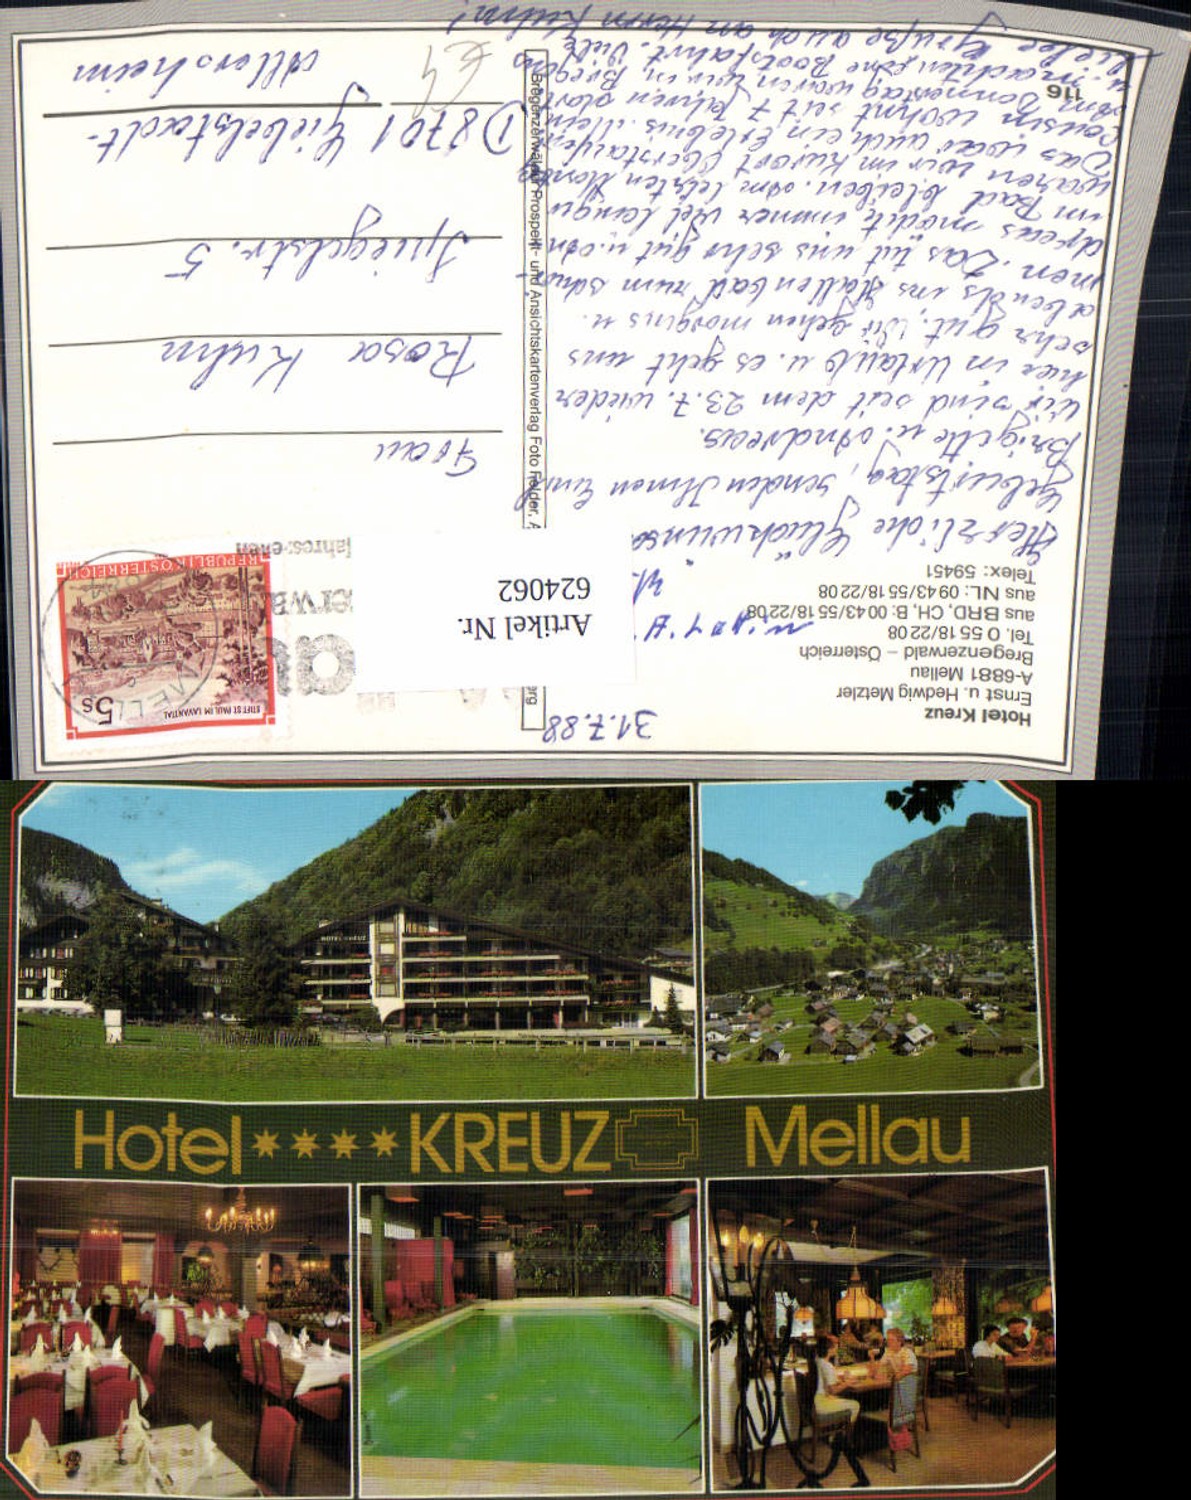 Hotel Kreuz
Ernst u. Hedwig Metzler
A-6881 Mellau
Bregenzerwald – Österreich
Tel. 0 55 18/22 08
aus BRD, CH, B: 00 43/55 18/22 08
aus NL: 09 43/55 18/22 08
Telex: 59451
31.7.88
Herzliche Glückwünsche
Geburtstag, senden Ihnen
Brigitte u. Andreas.
Wir sind seit dem 23.7. wieder
hier in Urlaub u. es geht uns
sehr gut. Wir gehen morgens u.
abends ins Hallenbad zum schwim-
men. Das tut uns sehr gut u. An-
dreas möchte immer viel länger
im Bad bleiben. Am letzten Montag
waren wir im Kurort Oberstaufen
Das war auch ein Erlebnis. Meine
Cousin wohnt seit 7 Jahren dort.
Am Donnerstag waren wir in Bregenz
u. machten eine Bootsfahrt. Viele
liebe Grüße auch an Herrn Kuhn!
116
Bregenzerwälder Prospekt- und Ansichtskartenverlag Foto Felder,
Artikel Nr.
624062
STIFT ST. PAUL IM LAVANTAL
5s
REPUBLIK ÖSTERREICH
erwa
jahres
Frau
Rosa Kuhn
Spiegelstr. 5
D 8701 Giebelstadt-
Allersheim
€4
HOTEL KREUZ
Hotel****KREUZ Mellau